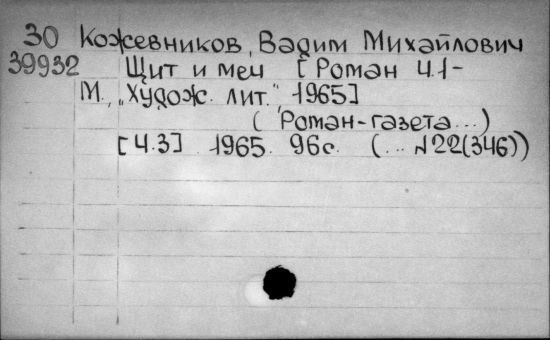 30 Кожевников, Вадим Михайлович
39932 Щит и меч [Роман Ч.1-
М., „Худож. лит.", 1965]
(Роман-газета...)
[Ч.3] 1965. 96с. (... №22(346))